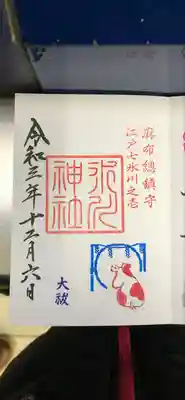 麻布總鎮守
江戸七氷川之壱
氷川
神社
令和三年十二月六日
大祓